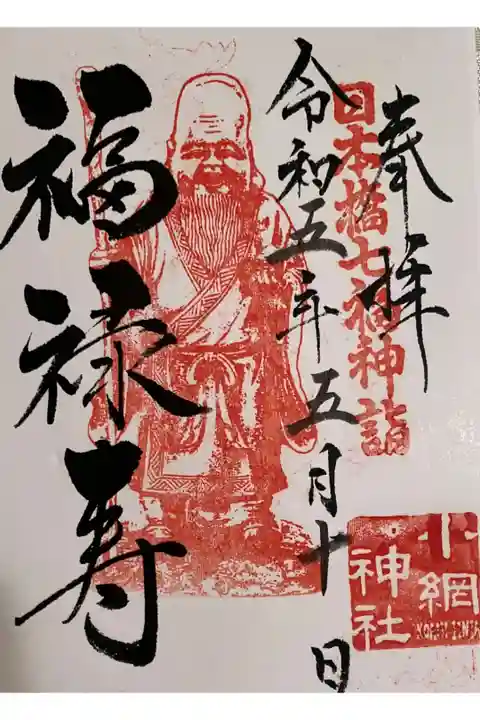 奉拝
日本橋七福神詣
令和五年五月十日
福禄寿
小網
神社
KOAMI JINJA